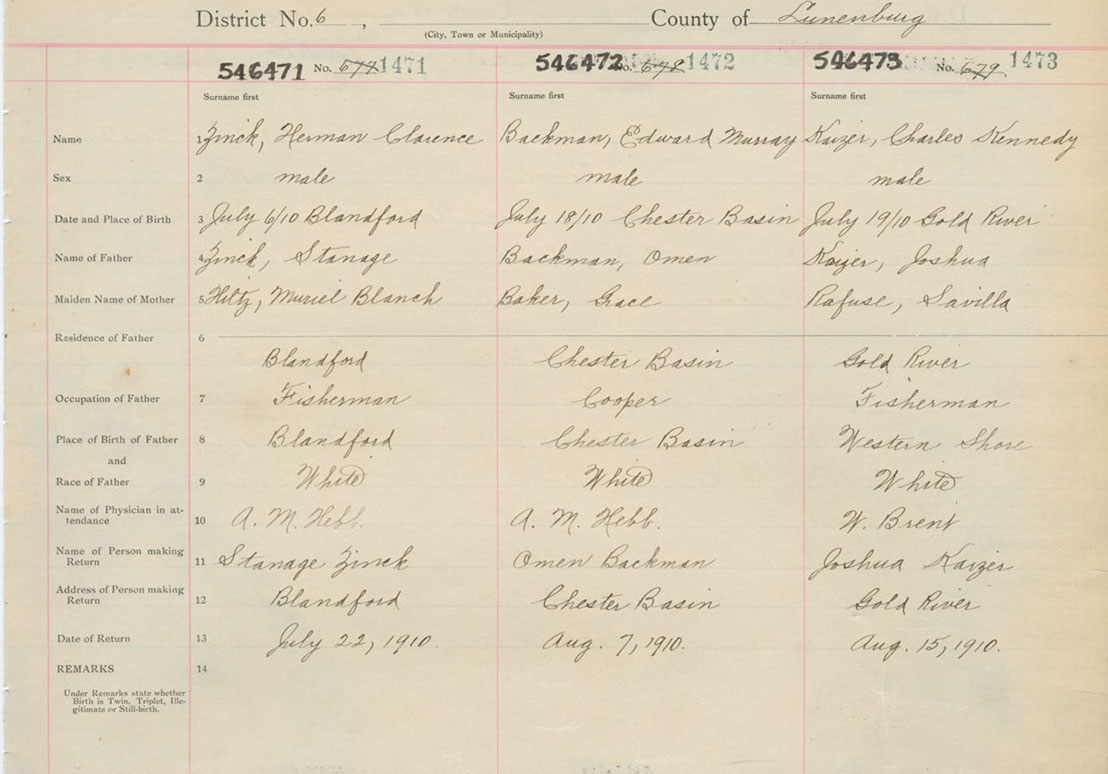 District No. 6 , County of Lunenburg
(City, Town or Municipality)
546471 No. 677 1471 546472 No. 678 1472 546473 No. 679 1473
Surname first Surname first Surname first
Name 1 Zinck, Herman Clarence Backman, Edward Murray Kaizer, Charles Kennedy
Sex 2 male male male
Date and Place of Birth 3 July 6/10 Blandford July 18/10 Chester Basin July 19/10 Gold River
Name of Father 4 Zinck, Stanage Backman, Omen Kaizer, Joshua
Maiden Name of Mother 5 Hiltz, Muriel Blanch Baker, Grace Rafuse, Savilla
Residence of Father 6
Blandford Chester Basin Gold River
Occupation of Father 7 Fisherman Cooper Fisherman
Place of Birth of Father 8 Blandford Chester Basin Western Shore
and
Race of Father 9 White White White
Name of Physician in at-
tendance 10 A. M. Hebb. A. M. Hebb. W. Brent
Name of Person making
Return 11 Stanage Zinck Omen Backman Joshua Kaizer
Address of Person making
Return 12 Blandford Chester Basin Gold River
Date of Return 13 July 22, 1910. Aug. 7, 1910. Aug. 15, 1910.
REMARKS 14
Under Remarks state whether
Birth is Twin, Triplet, Ille-
gitimate or Still-birth.